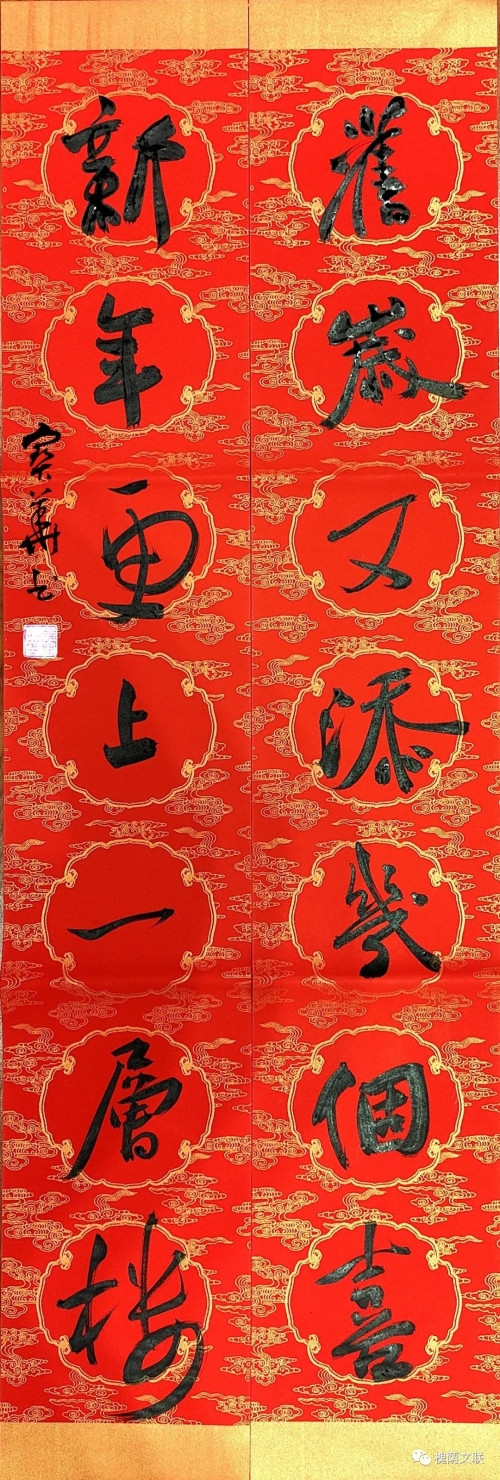 舊歲又添幾個喜
新年更上一層樓
寶華书
槐荫文联